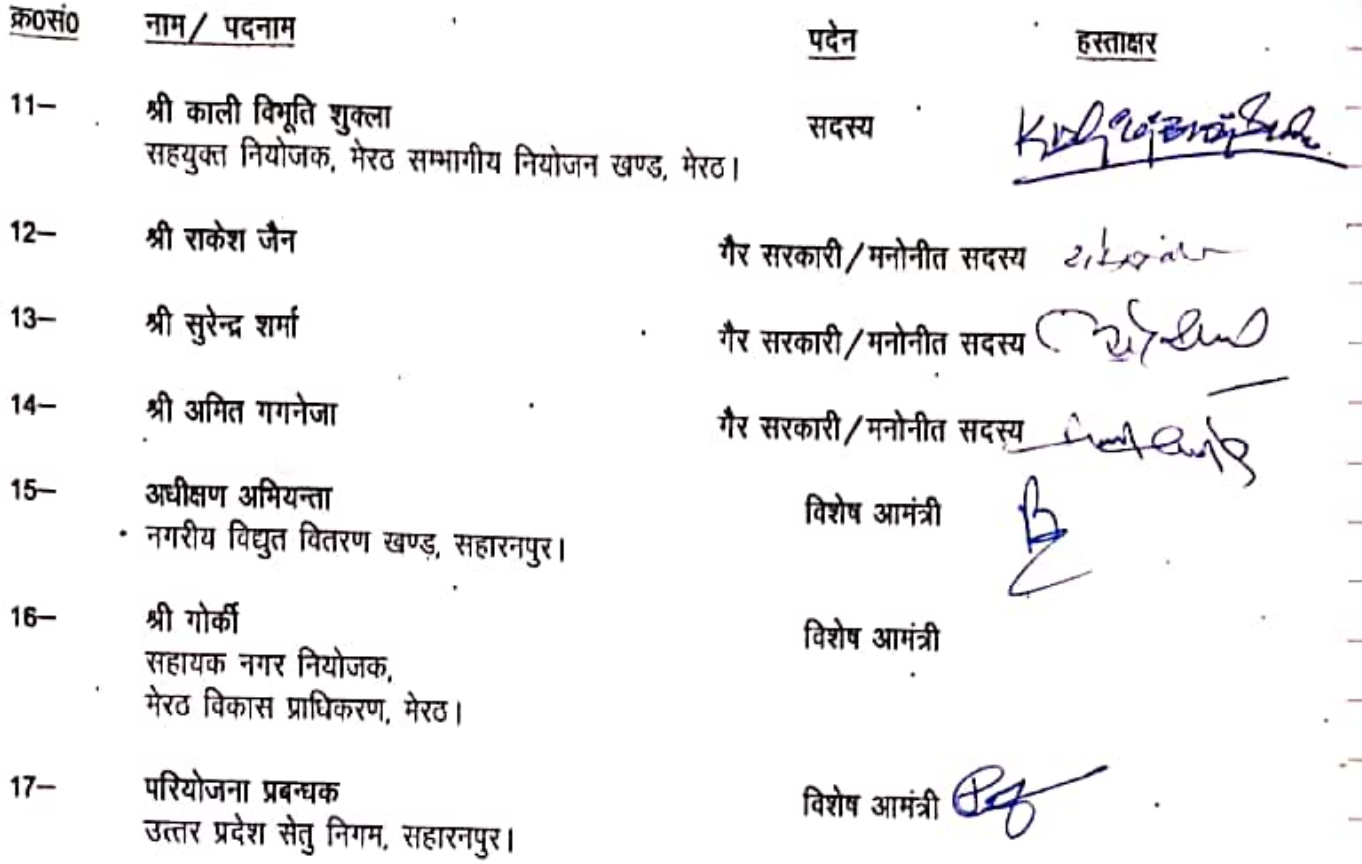 क्र०सं० नाम/ पदनाम पदेन हस्ताक्षर
11– श्री काली विभूति शुक्ला सदस्य
सहयुक्त नियोजक, मेरठ सम्भागीय नियोजन खण्ड, मेरठ।
12– श्री राकेश जैन गैर सरकारी/मनोनीत सदस्य
13– श्री सुरेन्द्र शर्मा गैर सरकारी/मनोनीत सदस्य
14– श्री अमित गगनेजा गैर सरकारी/मनोनीत सदस्य
15– अधीक्षण अभियन्ता विशेष आमंत्री
नगरीय विद्युत वितरण खण्ड, सहारनपुर।
16– श्री गोर्की विशेष आमंत्री
सहायक नगर नियोजक,
मेरठ विकास प्राधिकरण, मेरठ।
17– परियोजना प्रबन्धक विशेष आमंत्री
उत्तर प्रदेश सेतु निगम, सहारनपुर।